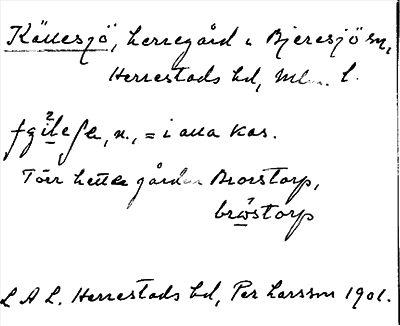 Källesjö, herregård i Bjeresjö sn,
Herrestads hd, Mlm. l.
n., = i alla kas.
Förr hette gården Brorstorp,
bröstorp
L A L. Herrestads hd, Per Larsson 1901.